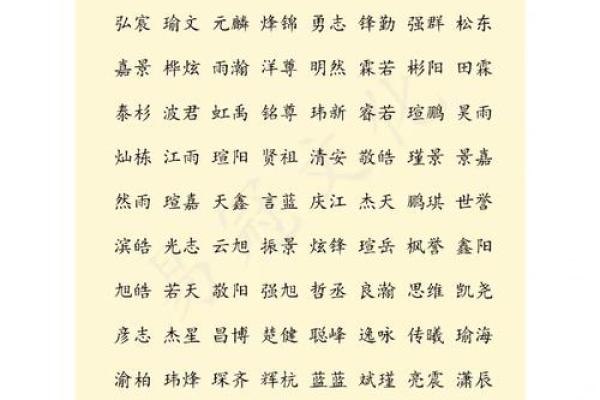 弘宸 瑜文 元麟 烽锦 勇志 锋勤 强群 松东
嘉景 桦炫 雨瀚 洋尊 明然 霖若 彬阳 田霖
泰杉 波君 虹禹 铭尊 玮新 睿若 瑄鹏 昊雨
灿栋 江雨 瑄阳 贤祖 清安 敬皓 瑾景 景嘉
然雨 瑄嘉 天鑫 言蓝 庆江 杰天 鹏琪 世誉
滨皓 光志 云旭 振景 炫锋 瑄岳 枫誉 鑫阳
旭皓 若天 敬阳 强旭 哲丞 良瀚 思维 凯尧
彦志 杰星 昌博 楚健 聪峰 逸咏 传曦 瑜海
渝柏 玮烽 琛齐 辉杭 蓝蓝 斌瑾 亮震 潇辰